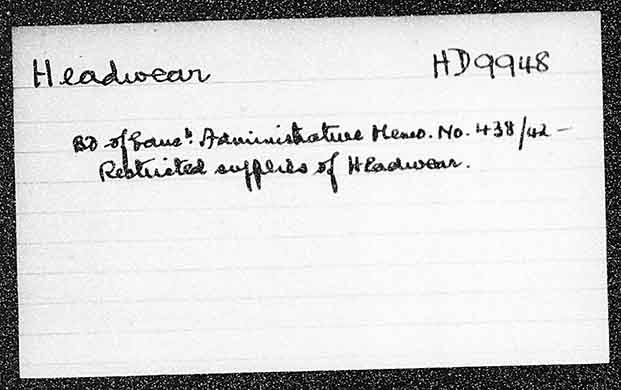 Headwear HD9948
Bd of Cans: Administrative Memo. No. 438/42 -
Restricted supplies of Headwear.